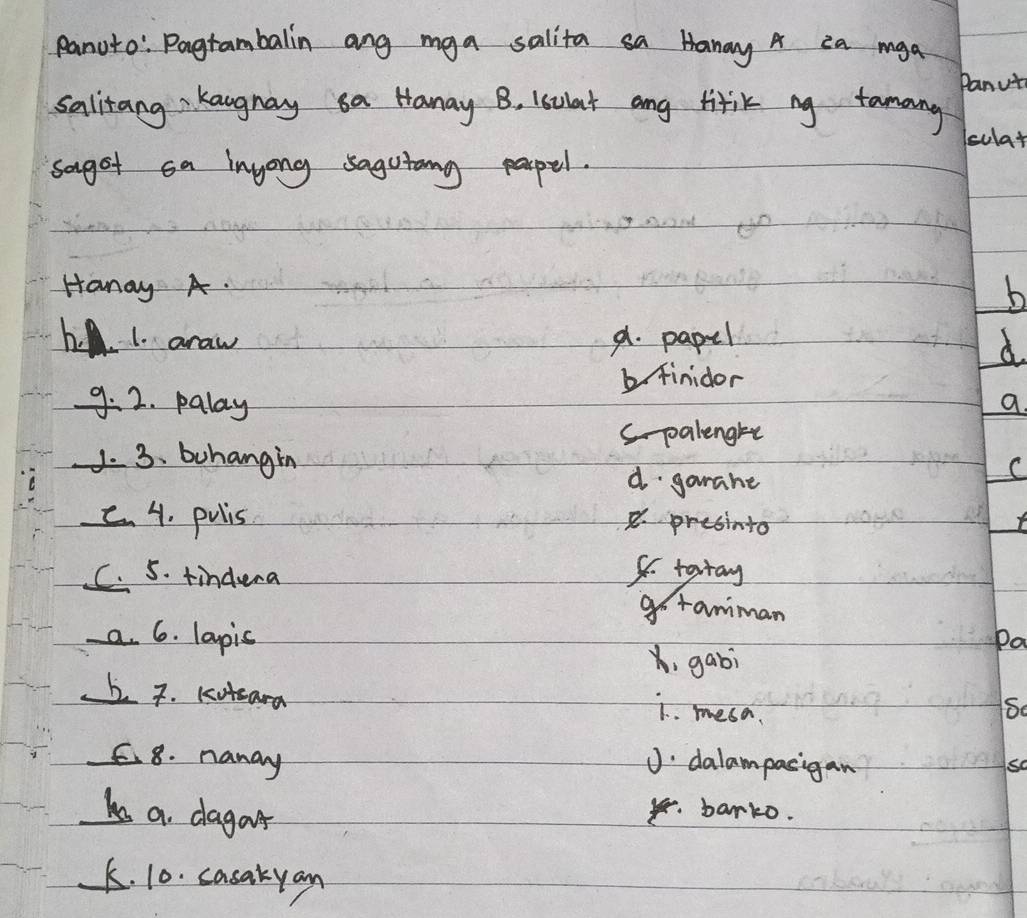 Panuto: Pagtambalin ang mga salita sa Hanay A sa mga
salitang kaugnay sa Hanay B. Isulat ang titik ng tamang
sagot sa inyong sagutang papel.
Hanay A.
h. 1. araw
g. 2. palay
J. 3. buhangin
e. 4. pulis
C. 5. tindera
a. 6. lapis
b. 7. kutsara
f. 8. nanay
9. dagat
k. 10. sasakyan
a. papel
b. tinidor
c. palengke
d. garahe
e. presinto
f. tatay
g. taniman
h. gabi
i. mesa.
J. dalampasigan
k. barko.
Panut
Isulat
b
d
a.
c
f
Pa
Sa
so